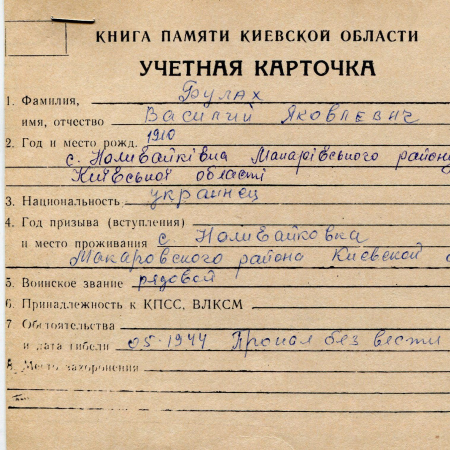 КНИГА ПАМЯТИ КИЕВСКОЙ ОБЛАСТИ
УЧЕТНАЯ КАРТОЧКА
1. Фамилия, Булах
имя, отчество Василий Яковлевич
2. Год и место рожд. 1910
с. Наливайківка Макарівського району
Київської області
3. Национальность украинец
4. Год призыва (вступления)
и место проживания с Наливайковка
Макаровского района Киевской о
5. Воинское звание рядовой
6. Принадлежность к КПСС, ВЛКСМ
7 Обстоятельства
и дата гибели 05.1944 Пропал без вести
8. Место захоронения